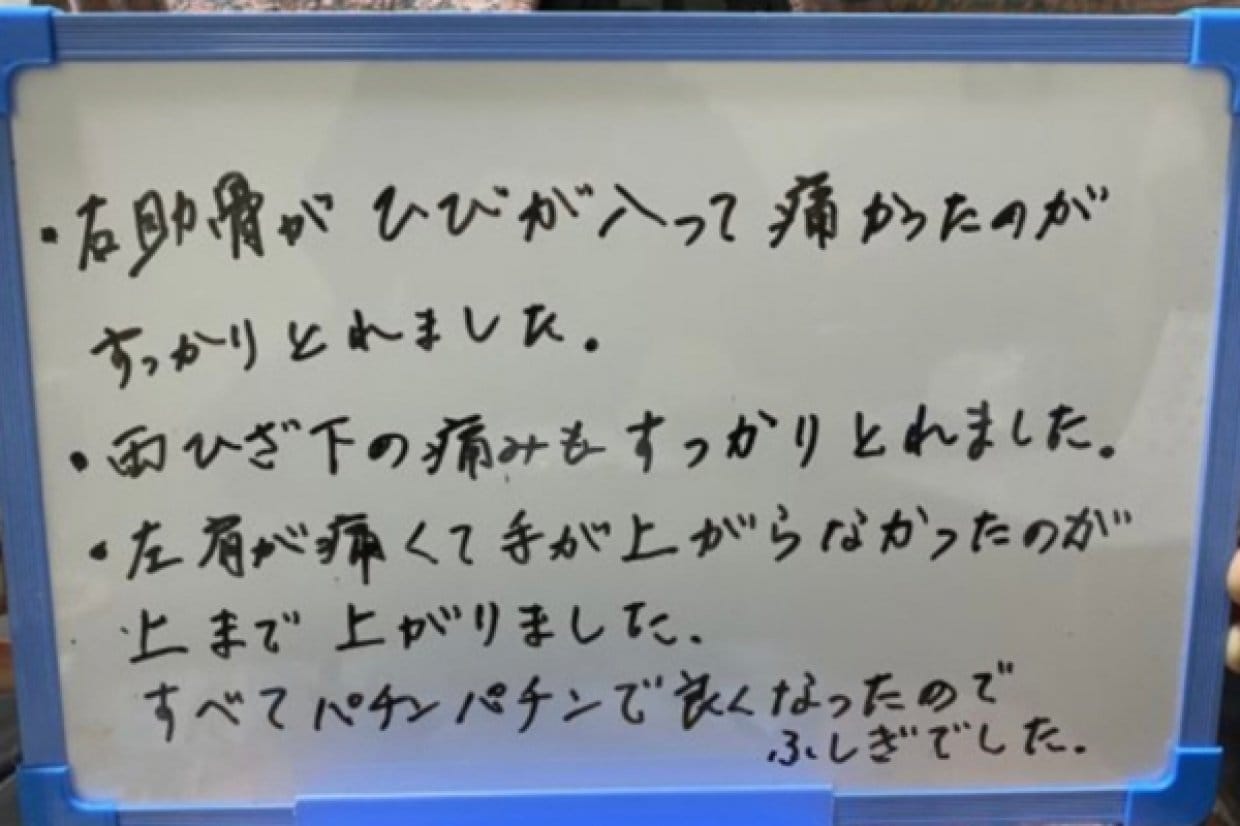 ・右助骨が ひびが入って痛かったのが
すっかりとれました。
・両ひざ下の痛みもすっかりとれました。
・左肩が痛くて手が上がらなかったのが
上まで上がりました。
すべてパチンパチンで良くなったので
ふしぎでした。